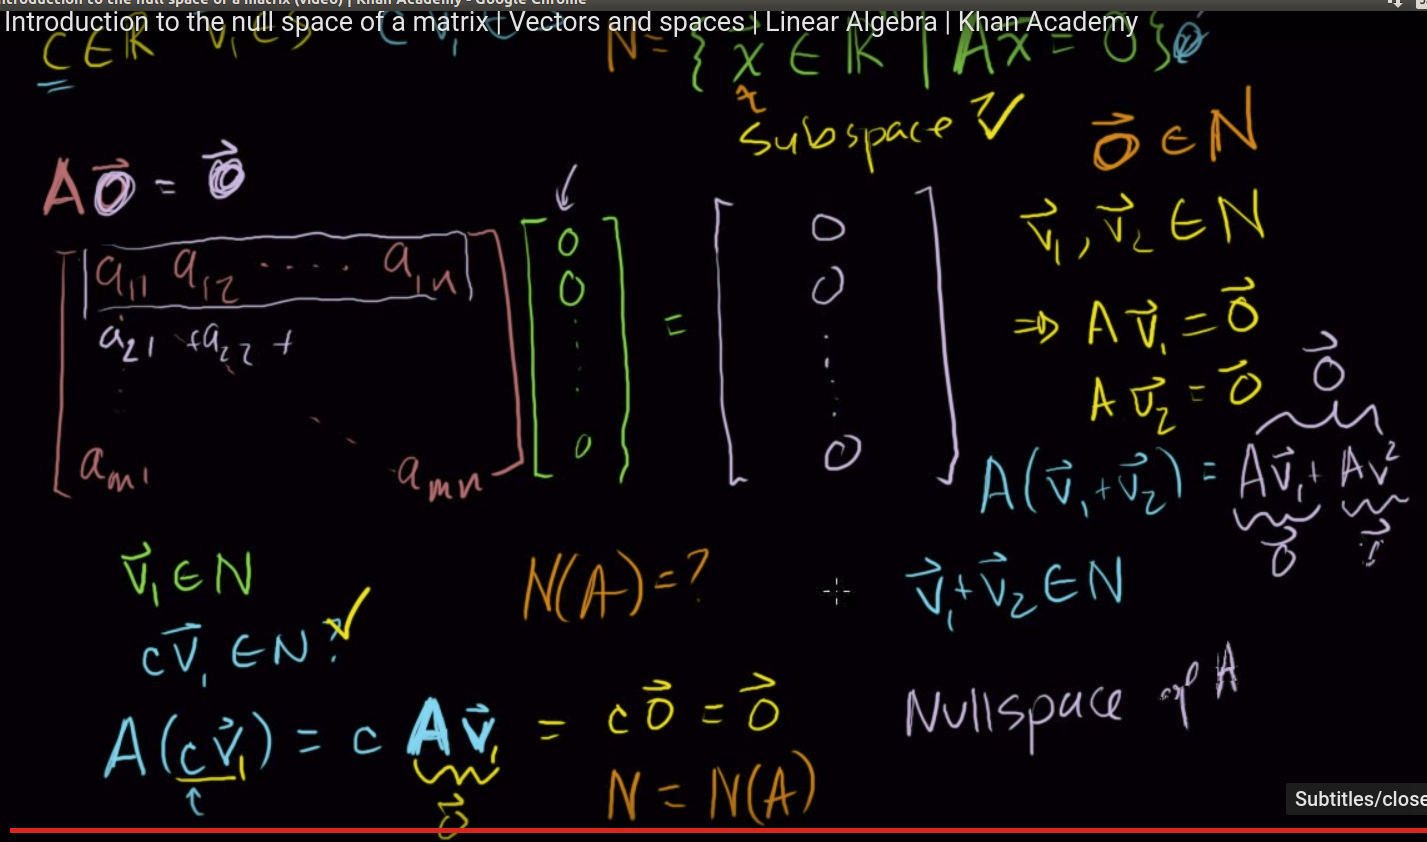 Introduction to the null space of a matrix (video) | Khan Academy - Google Chrome
Introduction to the null space of a matrix | Vectors and spaces | Linear Algebra | Khan Academy
c ∈ ℝ
N = { x⃗ ∈ ℝ | Ax⃗ = 0⃗ }
Subspace ? ✓
0⃗ ∈ N
A0⃗ = 0⃗
v⃗₁, v⃗₂ ∈ N
a₁₁ a₁₂ ..... a₁ₙ
a₂₁ + a₂₂ +
aₘ₁ aₘₙ
0
0
0
=
0
0
0
⇒ Av⃗₁ = 0⃗
Av⃗₂ = 0⃗
0⃗
A(v⃗₁ + v⃗₂) = Av⃗₁ + Av²
0⃗
v⃗₁ + v⃗₂ ∈ N
v⃗₁ ∈ N
cv⃗₁ ∈ N ? ✓
N(A) = ?
Nullspace of A
A(cv⃗₁) = c Av⃗₁ = c0⃗ = 0⃗
0⃗
N = N(A)
Subtitles/close